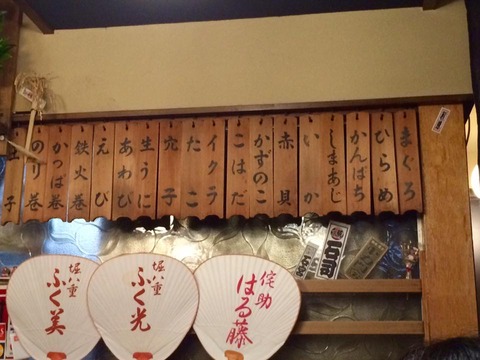 まぐろ
ひらめ
かんぱち
しまあじ
いか
赤貝
かずのこ
こはだ
イクラ
たこ
穴子
生うに
あわび
えび
鉄火巻
かっぱ巻
のり巻
玉子
侘助
はる藤
堀八重
ふく光
堀八重
ふく美